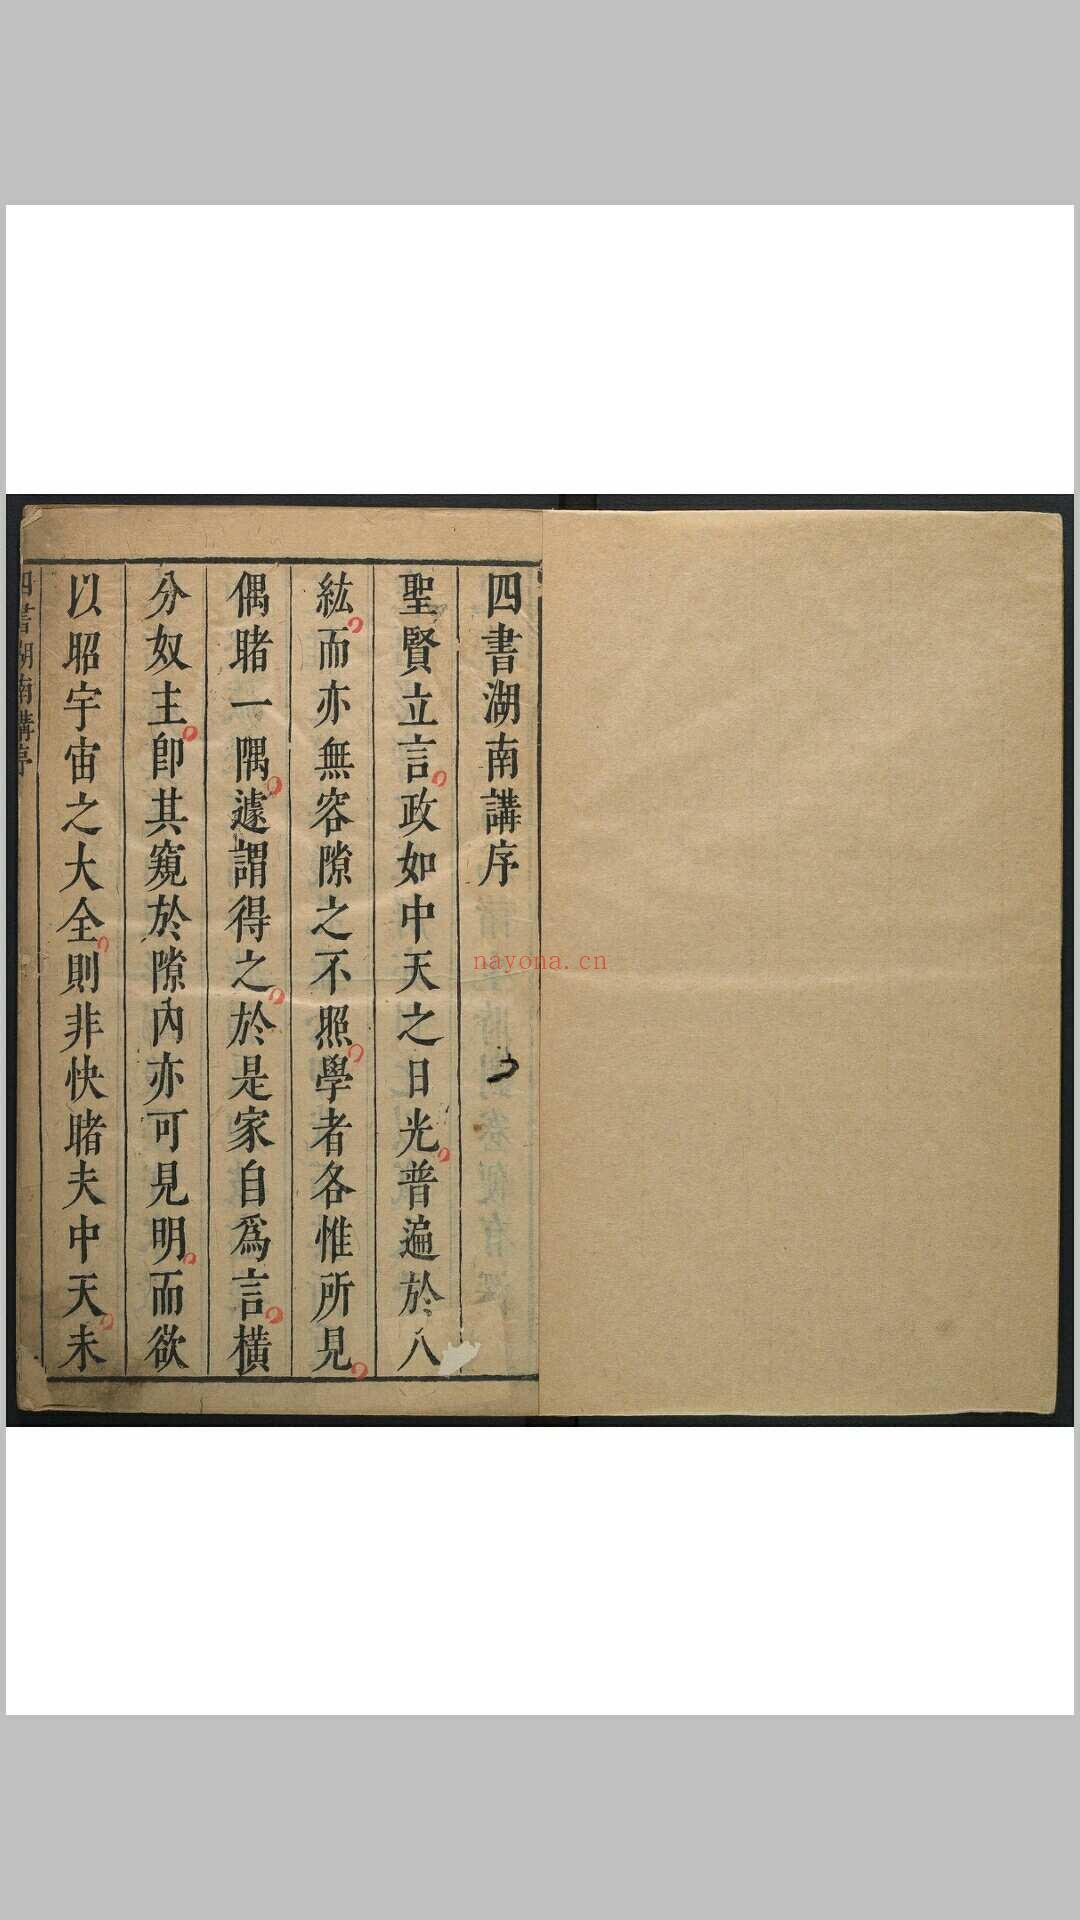 四書湖南講序
聖賢立言政如中天之日光普遍於八
紘而亦無容隙之不照學者各惟所見
偶睹一隅遽謂得之於是家自爲言橫
分奴主卽其窺於隙內亦可見明而欲
以昭宇宙之大全則非快睹夫中天未
四書湖南講序
nayona.cn